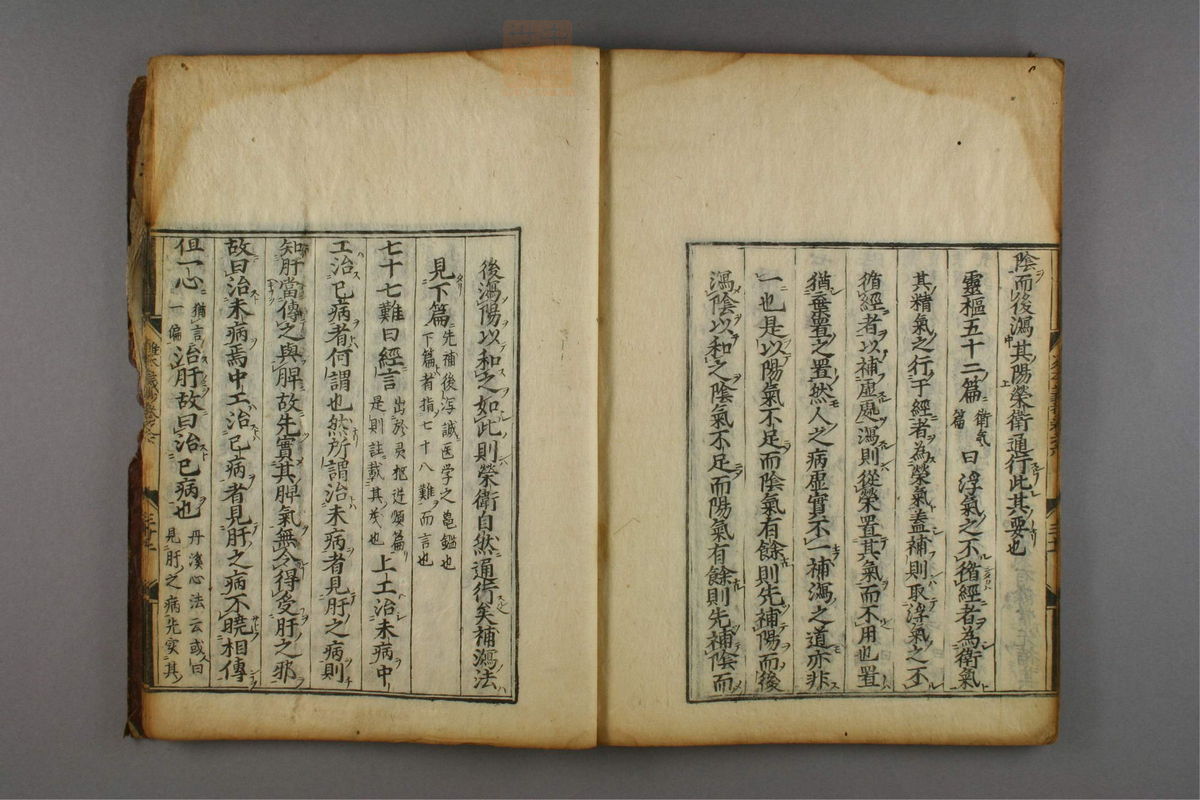 陰而後瀉其陽榮衛通行此其要也
靈樞五十二篇衛氣篇曰浮氣之不循經者為衛氣
其精氣之行于經者為榮氣蓋補則取浮氣之不
循經者以補虛處瀉則從榮置其氣而不用也置
猶棄置之置然人之病虛實不一補瀉之道亦非
一也是以陽氣不足而陰氣有餘則先補陽而後
瀉陰以和之陰氣不足而陽氣有餘則先補陰而
後瀉陽以和之如此則榮衛自然通行矣補瀉法
見下篇先補後泻誠医学之亀鑑也下篇者指七十八難而言也
七十七難曰經言是則註載其後也上工治未病中
工治已病者何謂也然所謂治未病者見肝之病則
知肝當傳之與脾故先實其脾氣無令得受肝之邪
故曰治未病焉中工治已病者見肝之病不曉相傳
但一心猶言一偏治肝故曰治已病也丹溪心法云或曰見肝之病先实其